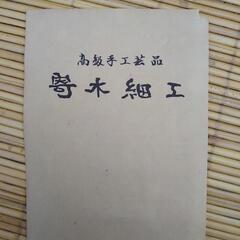 高級手工芸品
寄木細工